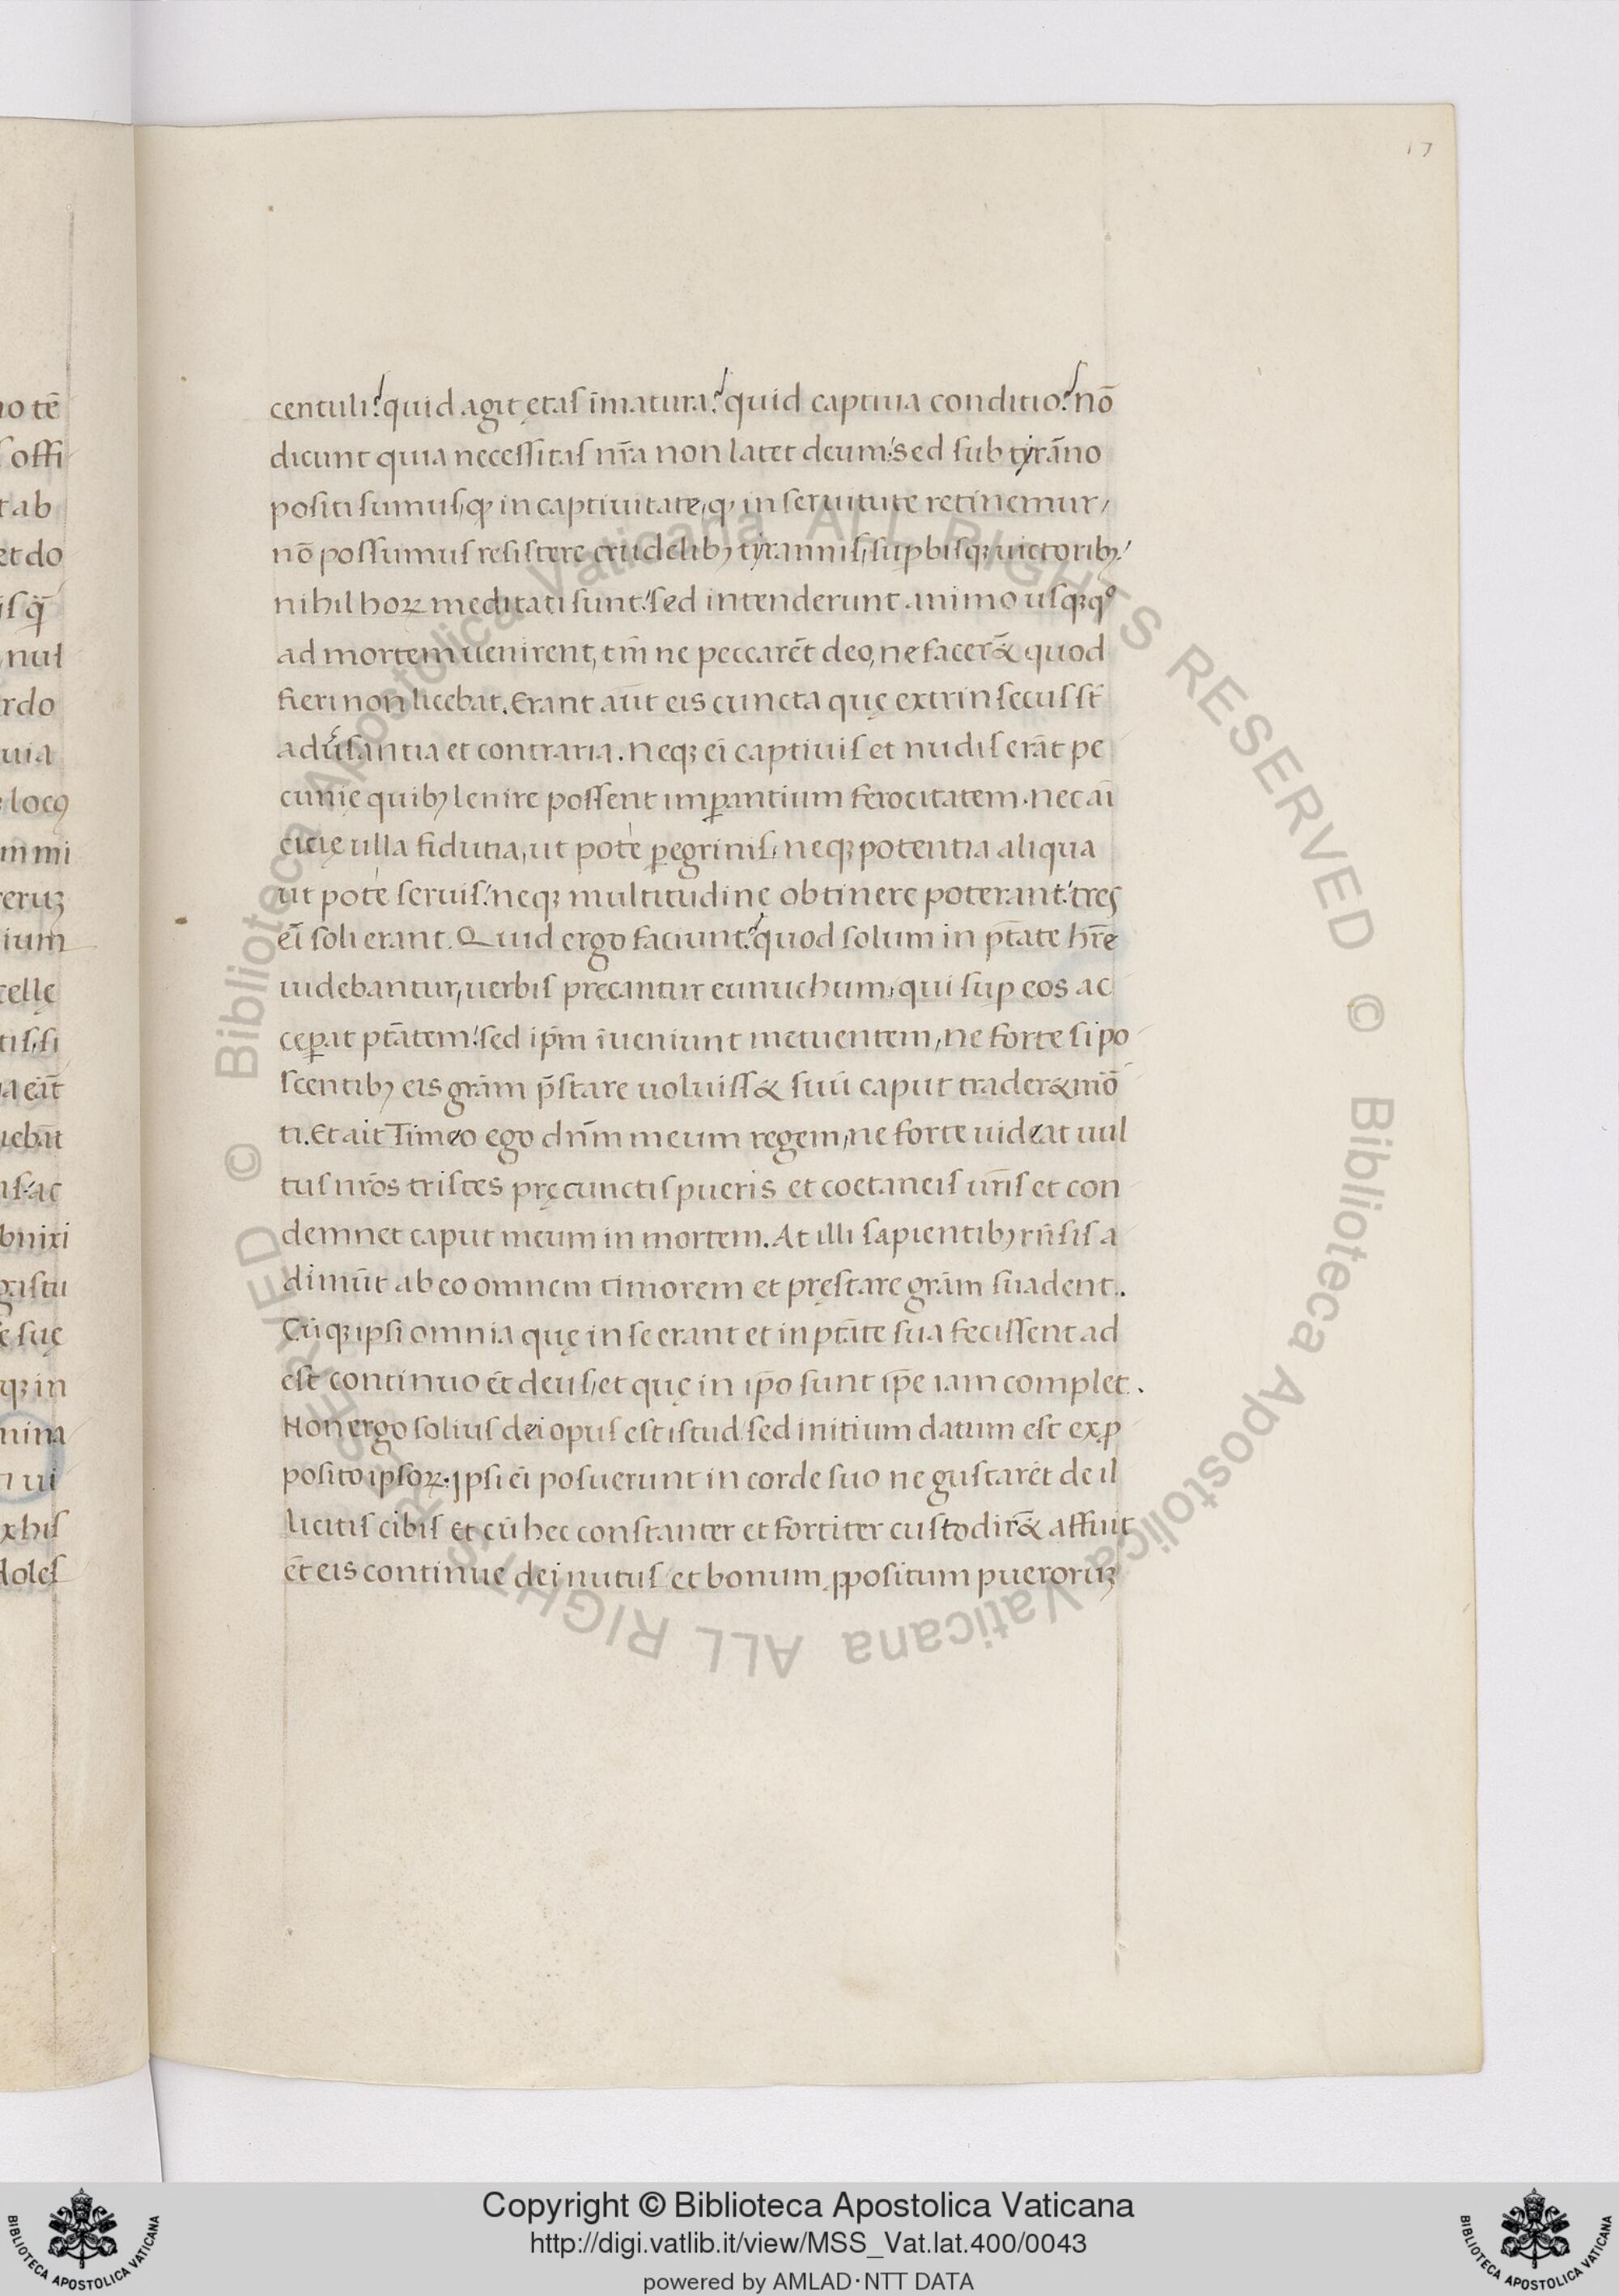 17
centuli? quid agit ętas īmatura? quid captiua conditio? nō
dicunt quia necessitas nr̄a non latet deum: sed sub tyrāno
positi sumus, ꝙ in captiuitate, ꝙ in seruitute retinemur,
nō possumus resistere crudelibꝫ tyrannis, suꝑbisqꝫ uictoribꝫ:
nihil hoꝝ meditati sunt: sed intenderunt animo usqꝫqͦ
ad mortem uenirent, tm̄ ne peccarēt deo, ne facer&̄ quod
fieri non licebat. Erant aūt eis cuncta quę extrinsecus st̄
adūsantia et contraria. neqꝫ ei̅ captiuis et nudis erāt pe
cunię quibꝫ lenire possent imꝑantium ferocitatem. nec ai̅
citię ulla fidutia, ut pote ꝑegrinis, neqꝫ potentia aliqua
ut pote seruis: neqꝫ multitudine obtinere poterant: tres
ei̅ soli erant. Quid ergo faciunt? quod solum in pt̄ate hr̄e
uidebantur, uerbis precantur eunuchum, qui suꝑ eos ac
ceꝑat pt̄atem: sed ip̄m īueniunt metuentem, ne forte si po
scentibꝫ eis grām p̄stare uoluiss& suū caput trader& mō
ti. Et ait Timeo ego dn̄m meum regem, ne forte uideat uul
tus nr̄os tristes pręcunctis pueris et coetaneis ur̄is et con
demnet caput meum in mortem. At illi sapientibꝫ rn̄sis a
dimūt ab eo omnem timorem et pręstare grām suadent.
Cūqꝫ ipsi omnia quę in se erant et in pt̄ate sua fecissent ad
est continuo et̄ deus, et quę in ip̄o sunt ip̄e iam complet.
Non ergo solius dei opus est istud sed initium datum est ex ꝓ
posito ipsoꝝ. ipsi ei̅ posuerunt in corde suo ne gustarēt de il
licitis cibis et cū hec constanter et fortiter custodir&̄ affuit
et̄ eis continue dei nutus et bonum ꝓpositum pueroruꝫ
Copyright © Biblioteca Apostolica Vaticana
http://digi.vatlib.it/view/MSS_Vat.lat.400/0043
powered by AMLAD·NTT DATA